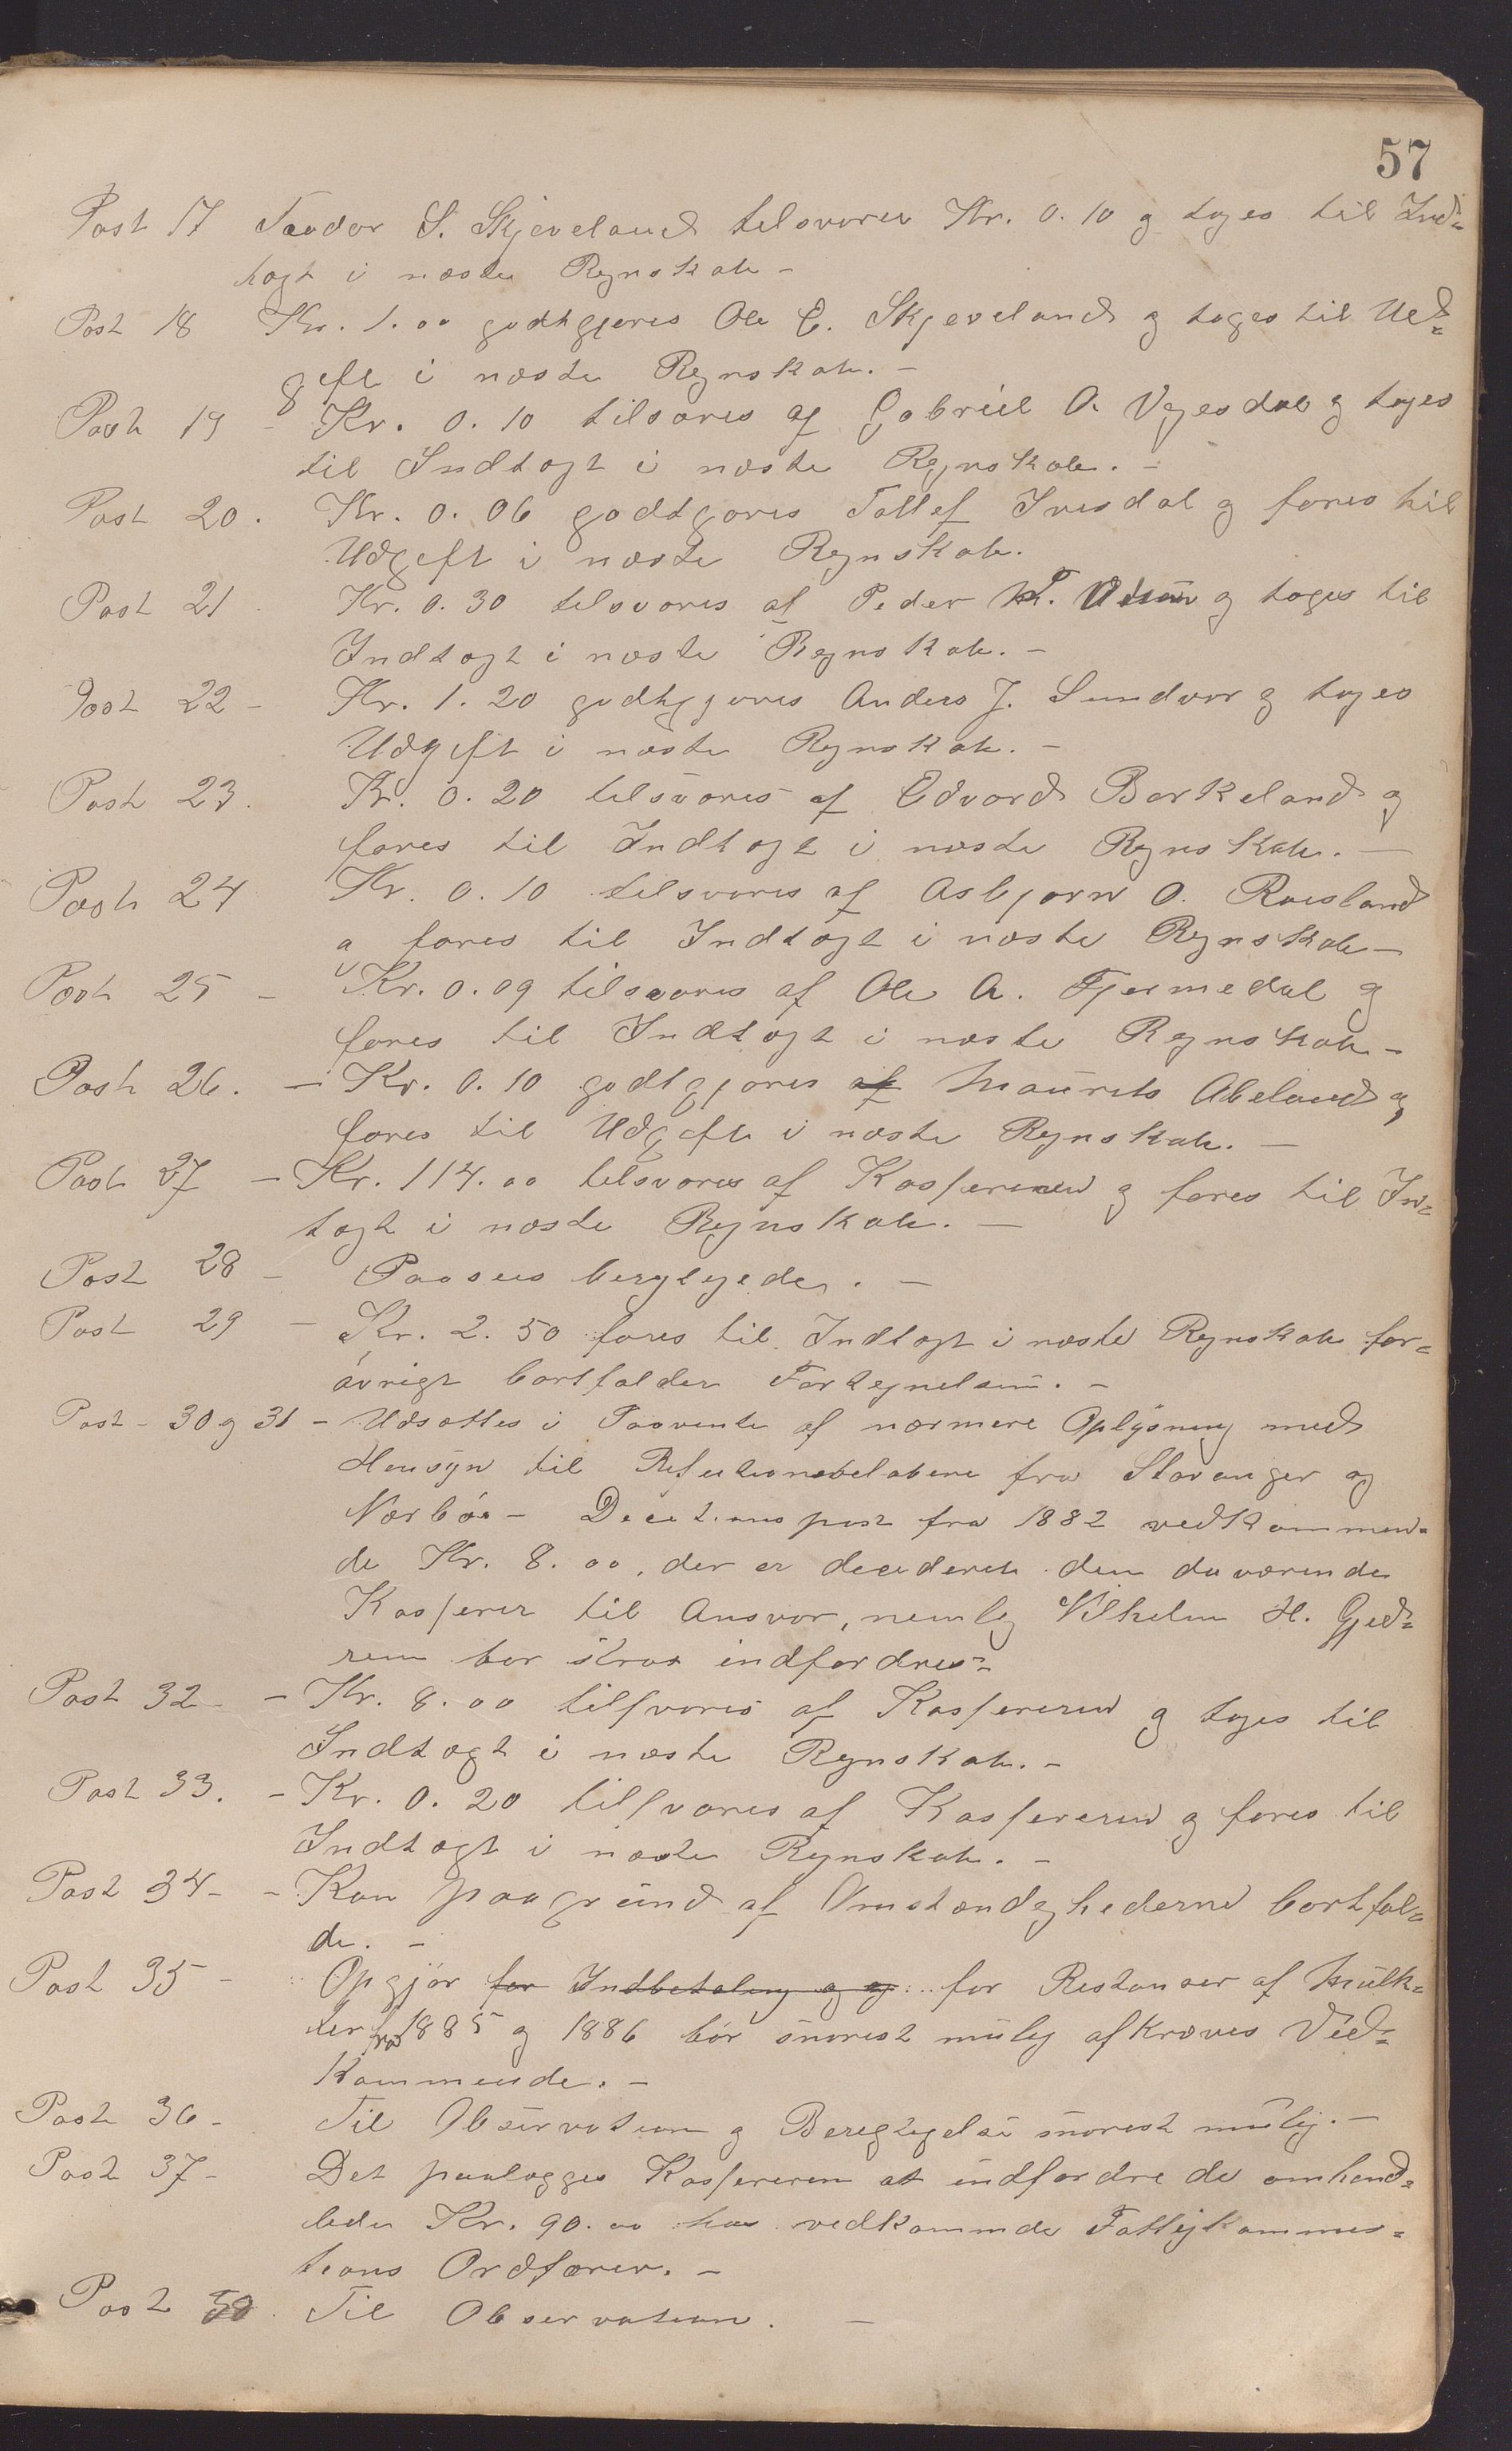 57
Post 17 Tavdor S. Skjeveland tilsvarer Kr. 0.10 og tages til Ind=
tagt i næste Regnskab -
Post 18 Kr. 1.00 godtgjøres Ole E. Skjeveland og tages til Ud=
gift i næste Regnskab. -
Post 19 - Kr. 0.10 tilsvares af Gabriel A. Vejesdal og tages
til Indtægt i næste Regnskab. -
Post 20. Kr. 0.06 godtgjøres Tollef Ivesdal og føres til
Udgift i næste Regnskab.
Post 21 Kr. 0.30 tilsvares af Peder og tages til
Indtagt i næste Regnskab. -
Post 22 - Kr. 1.20 godtgjøres Anders J. Sundvor og tages
Udgift i næste Regnskab. -
Post 23. Kr. 0.20 tilsvares af Edvard Barkeland og
føres til Indtagt i næste Regnskab. -
Post 24 Kr. 0.10 tilsvares af Asbjørn O. Roesland
og føres til Indtagt i næste Regnskab -
Post 25 - Kr. 0.09 tilsvares af Ole A. Fjermedal og
føres til Indtægt i næste Regnskab -
Post 26. - Kr. 0.10 godtgjøres af Maurits Abeland og
føres til Udgift i næste Regnskab. -
Post 27 - Kr. 114.00 tilsvares af Kassereren og føres til In=
tagt i næste Regnskab. -
Post 28 - Passus berigtigede. -
Post 29 - Kr. 2.50 føres til Indtagt i næste Regnskab for=
øvrigt bortfalder Fortegnelsen. -
Post - 30 og 31 - Udsættes i Paavente af nærmere Oplysning med
Hensyn til Refusionsbeløbene fra Stavanger og
Nærbø - Decisionspost fra 1882 vedkommen=
de Kr. 8.00, der er decideret den daværende
Kasserer til Ansvar, nemlig Vilhelm H. Gjed=
rem bør strax indfordres -
Post 32 - - Kr. 8.00 tilsvares af Kassereren og tages til
Indtægt i næste Regnskab. -
Post 33. - Kr. 0.20 tilsvares af Kassereren og føres til
Indtægt i næste Regnskab. -
Post 34 - - Kan paa grund af Omstændighederne bortfal=
de. -
Post 35 - Opgjør for Indbetaling og for Restanser af Mulk=
ter fra 1885 og 1886 bør snarest mulig afkræves Ved=
kommende. -
Post 36 - Til Observation og Berigtigelse snarest mulig. -
Post 37 - Det paalægges Kassereren at indfordre de omhand=
lede Kr. 90.00 hos vedkommde Fattigkommis=
tions Ordfører. -
Post 38. Til Observation. -